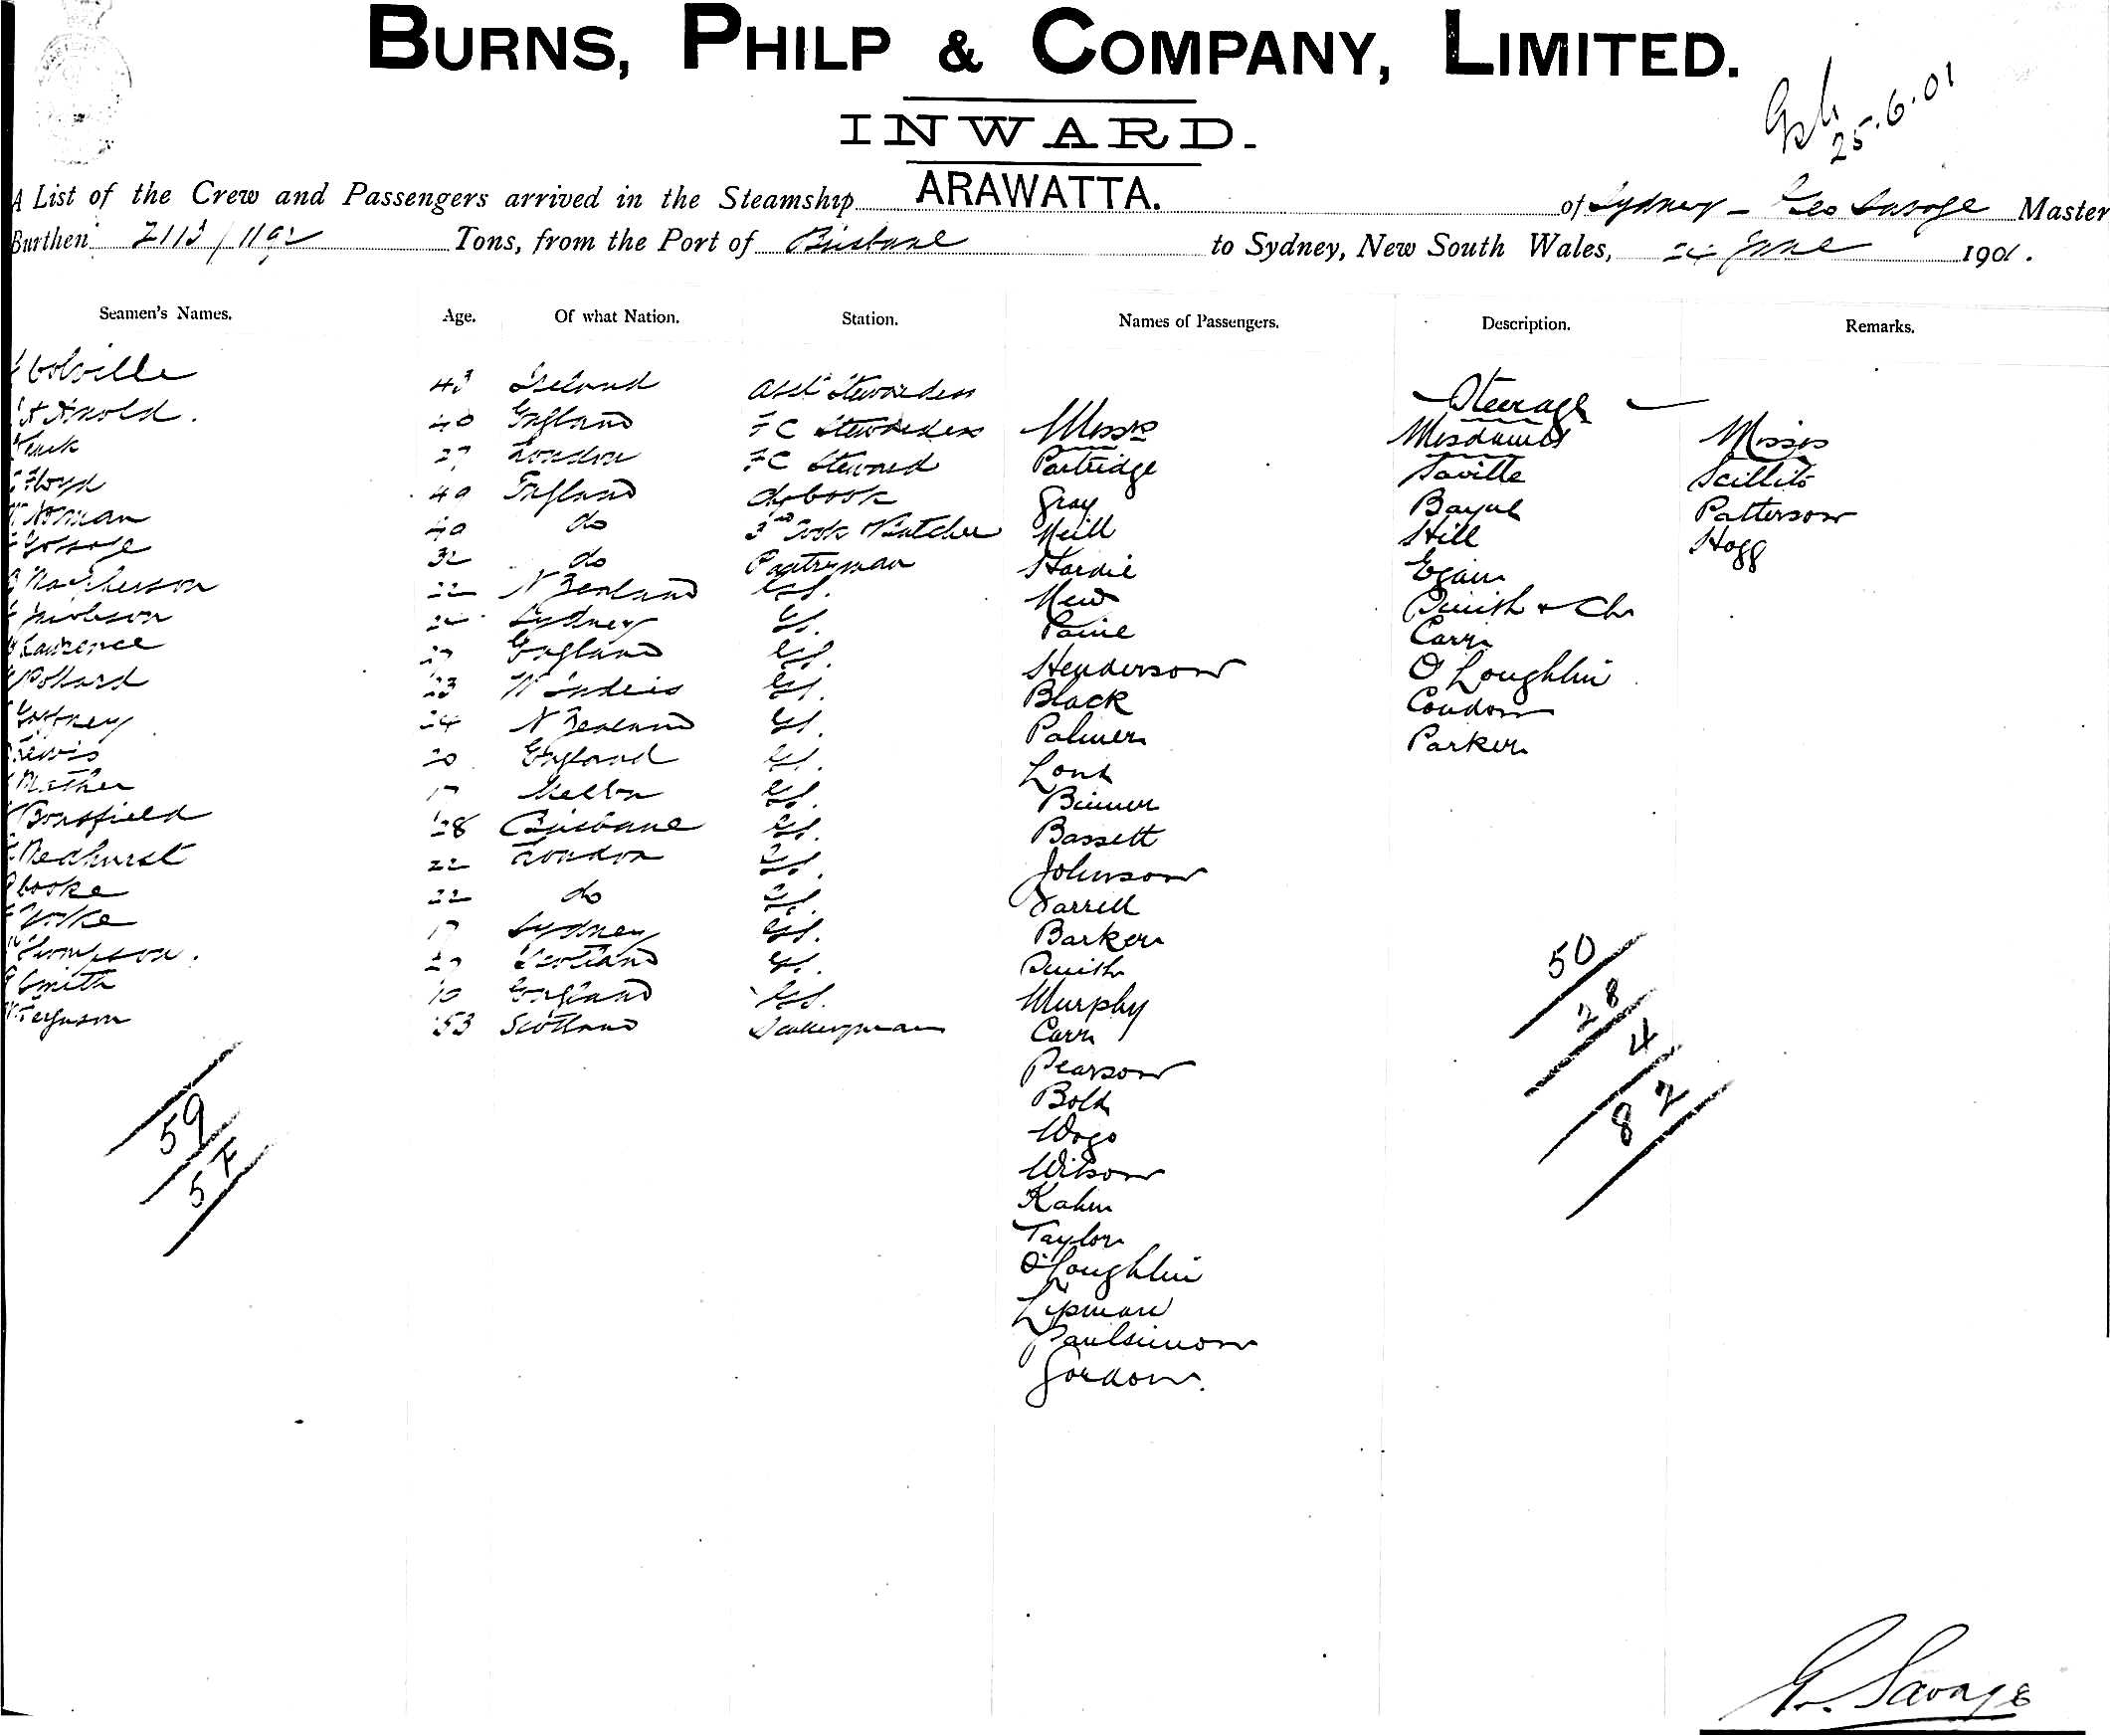 BURNS, PHILP & COMPANY, LIMITED.
INWARD.
25.6.01
A List of the Crew and Passengers arrived in the Steamship ARAWATTA. of Sydney - Geo Savage Master
Burthen 2113/1192 Tons, from the Port of Brisbane to Sydney, New South Wales, 24 June 1901.
Seamen's Names. Age. Of what Nation. Station. Names of Passengers. Description. Remarks.
Colville 43 Ireland Asst Stewardess Steerage
Arnold. 40 England F C Stewardess Messrs Mesdames Misses
27 London F C Steward Partridge Saville Scillito
Floyd 40 England Ch Cook Gray Bayne Patterson
Norman 40 do 3rd Cook & Butcher Neill Hill Hogg
32 do Pantryman Hardie Egan
Macpherson 22 N Zealand GS. New Smith & Ch
Sydney GS. Paine Carr
Lawrence 27 England GS. Henderson O'Loughlin
Pollard 23 W Indies GS. Black Condon
24 N Zealand GS. Palmer Parker
Lewis 20 England GS. Lord
Mather 17 Melbn GS. Binner
28 Brisbane GS. Bassett
Medhurst 22 London GS. Johnson
Cooke 22 do GS. Farrell
Yorke 17 Sydney GS. Barker
Thompson. Scotland GS. Smith
Smith England GS. Murphy
Ferguson 53 Scotland Sculleryman Carr
Pearson
Bold
Wilson
Kahn
Taylor
O'Loughlin
Lipman
Paulsimon
Gordon.
59
57
50
28
4
82
G. Savage